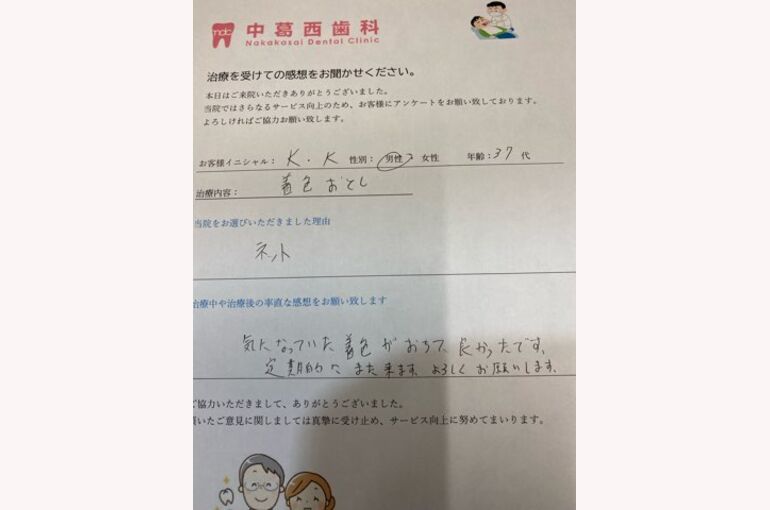 ndc 中葛西歯科
Nakakasai Dental Clinic
治療を受けての感想をお聞かせください。
本日はご来院いただきありがとうございました。
当院ではさらなるサービス向上のため、お客様にアンケートをお願い致しております。
よろしければご協力お願い致します。
お客様イニシャル： K.K 性別： 男性・女性 年齢：37 代
治療内容： 着色おとし
当院をお選びいただきました理由
ネット
治療中や治療後の率直な感想をお願い致します
気になっていた着色がおちて良かったです、
定期的にまた来ます、よろしくお願いします、
ご協力いただきまして、ありがとうございました。
頂いたご意見に関しましては真摯に受け止め、サービス向上に努めてまいります。